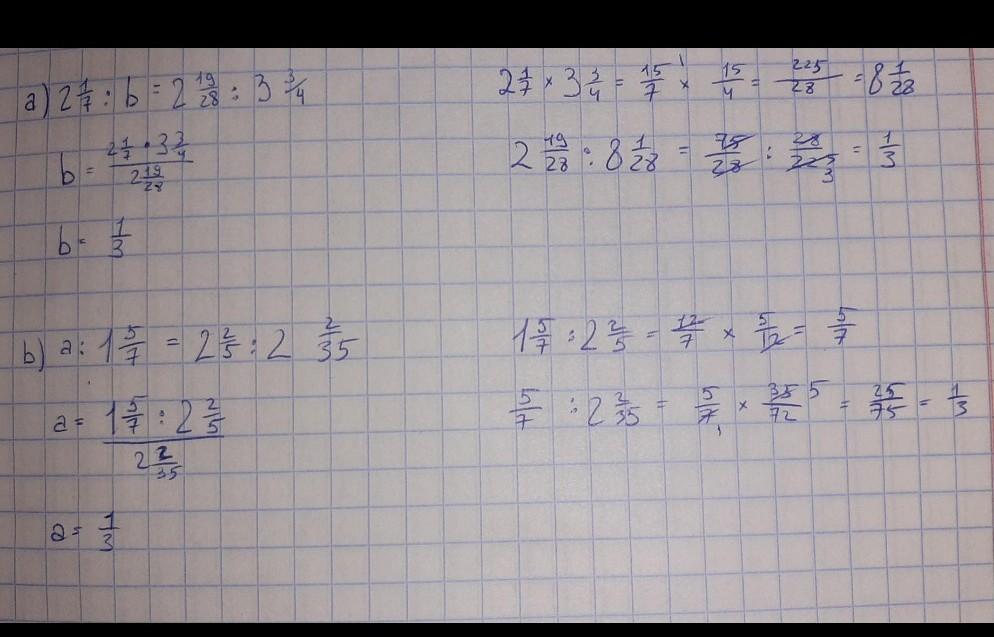 a) 2 1/7 : b = 2 19/28 : 3 3/4
b = (2 1/7 · 3 3/4) / (2 19/28)
b = 1/3
2 1/7 × 3 3/4 = 15/7 × 15/4 = 225/28 = 8 1/28
2 19/28 : 8 1/28 = 75/28 : 28/225 3 = 1/3
b) a : 1 5/7 = 2 2/5 : 2 2/35
a = (1 5/7 : 2 2/5) / (2 2/35)
a = 1/3
1 5/7 : 2 2/5 = 12/7 × 5/12 = 5/7
5/7 : 2 2/35 = 5/7 1 × 35/72 5 = 25/75 = 1/3